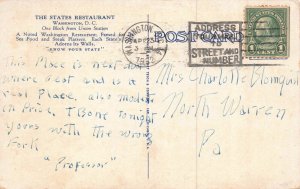 THE STATES RESTAURANT
WASHINGTON, D. C.
One Block from Union Station
A Noted Washington Restaurant; Famed for
Sea Food and Steak Dinners. Each State's Seal
Adorns Its Walls.
"KNOW YOUR STATE"
POST CARD
WASHINGTON
ADDRESS
TO
STREET AND
NUMBER
1
This Place is next door
where best and is a
real Place, also modest
in Price, T Bone tonight
yours with the wrong
Fork
"Professor"
Mrs Charlotte Blomquist
North Warren
Pa